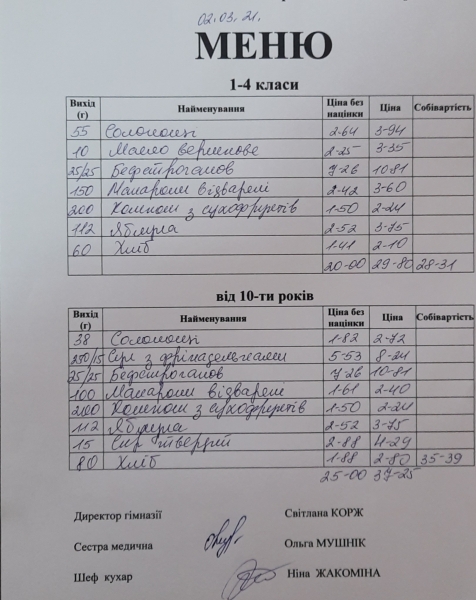 02.03.21.
МЕНЮ
1-4 класи
Вихід (г) Найменування Ціна без націнки Ціна Собівартість
55 Солонина 2-64 3-94
10 Масло вершкове 2-25 3-35
25/25 Бефстроганов 7-26 10-81
150 Макарони відварені 2-42 3-60
200 Компот з сухофруктів 1-50 2-24
112 Яблука 2-52 3-75
60 Хліб 1-41 2-10
20-00 29-80 28-31
від 10-ти років
Вихід (г) Найменування Ціна без націнки Ціна Собівартість
38 1-82 2-72
250/15 Суп з фрикадельками 5-53 8-24
25/25 Бефстроганов 7-26 10-81
100 Макарони відварені 1-61 2-40
200 Компот з сухофруктів 1-50 2-24
112 Яблука 2-52 3-75
15 Сир твердий 2-88 4-29
80 Хліб 1-88 2-80 35-39
25-00 37-25
Директор гімназії Світлана КОРЖ
Сестра медична Ольга МУШНІК
Шеф кухар Ніна ЖАКОМІНА